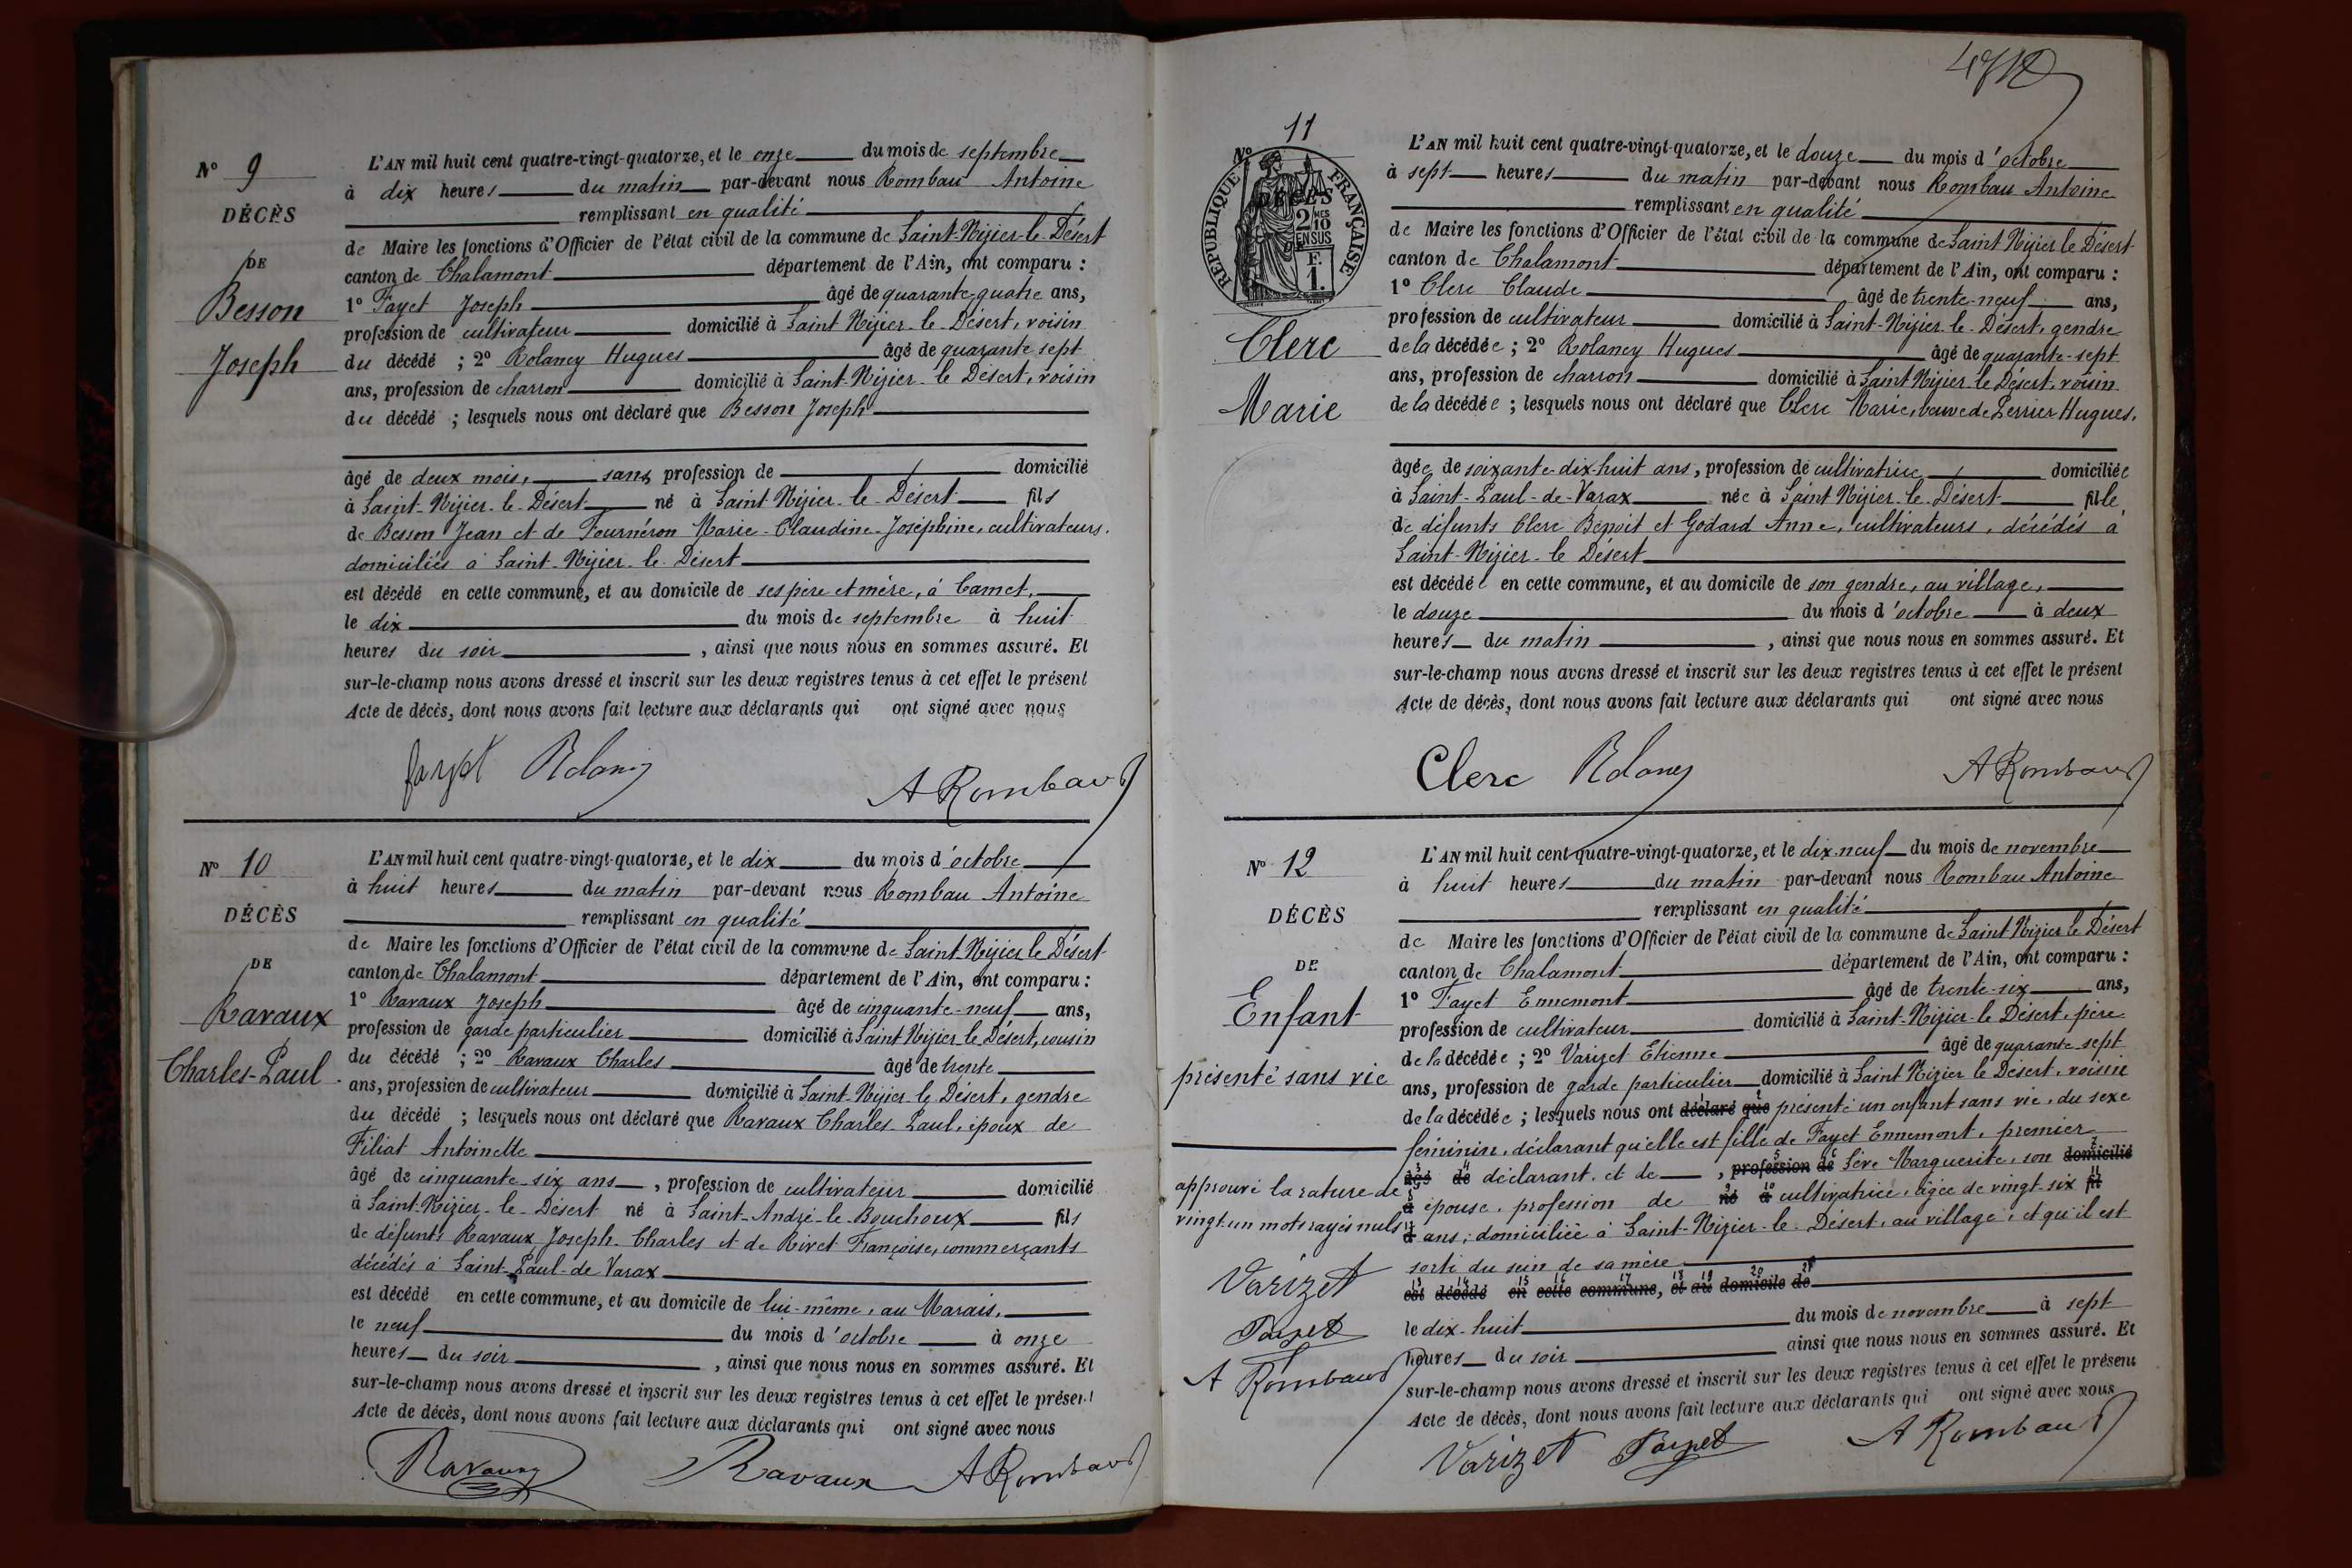 Nº 9
DÉCÈS
DE
Besson
Joseph
L'AN mil huit cent quatre-vingt-quatorze, et le onze du mois de septembre
à dix heures du matin par-devant nous Rombau Antoine
remplissant en qualité
de Maire les fonctions d'Officier de l'état civil de la commune de Saint-Nizier-le-Désert
canton de Chalamont département de l'Ain, ont comparu :
1º Fayet Joseph âgé de quarante-quatre ans,
profession de cultivateur domicilié à Saint Nizier-le-Désert, voisin
du décédé ; 2º Rolancy Hugues âgé de quarante sept
ans, profession de charron domicilié à Saint-Nizier-le Désert, voisin
du décédé ; lesquels nous ont déclaré que Besson Joseph
âgé de deux mois, sans profession de domicilié
à Saint-Nizier-le-Désert né à Saint Nizier-le-Désert fils
de Besson Jean et de Fournéron Marie-Claudine-Joséphine, cultivateurs.
domiciliés à Saint-Nizier-le Désert
est décédé en cette commune, et au domicile de ses père et mère, à Camet,
le dix du mois de septembre à huit
heures du soir , ainsi que nous nous en sommes assuré. Et
sur-le-champ nous avons dressé et inscrit sur les deux registres tenus à cet effet le présent
Acte de décès, dont nous avons fait lecture aux déclarants qui ont signé avec nous
fayet Rolancy A Rombaud
Nº 10
DÉCÈS
DE
Ravaux
Charles-Paul
L'AN mil huit cent quatre-vingt-quatorze, et le dix du mois d'octobre
à huit heures du matin par-devant nous Rombau Antoine
remplissant en qualité
de Maire les fonctions d'Officier de l'état civil de la commune de Saint-Nizier le Désert
canton de Chalamont département de l'Ain, ont comparu :
1º Ravaux Joseph âgé de cinquante-neuf ans,
profession de garde particulier domicilié à Saint Nizier-le Désert, cousin
du décédé ; 2º Ravaux Charles âgé de trente
ans, profession de cultivateur domicilié à Saint-Nizier-le Désert, gendre
du décédé ; lesquels nous ont déclaré que Ravaux Charles-Paul, époux de
Filiat Antoinette
âgé de cinquante-six ans , profession de cultivateur domicilié
à Saint-Nizier-le-Désert né à Saint-André-le-Bouchoux fils
de défunts Ravaux Joseph-Charles et de Rivet Françoise, commerçants
décédés à Saint-Paul-de Varax
est décédé en cette commune, et au domicile de lui-même, au Marais,
le neuf du mois d'octobre à onze
heures du soir , ainsi que nous nous en sommes assuré. Et
sur-le-champ nous avons dressé et inscrit sur les deux registres tenus à cet effet le présent
Acte de décès, dont nous avons fait lecture aux déclarants qui ont signé avec nous
Ravaux Ravaux A Rombaud
11
Nº
DÉCÈS
RÉPUBLIQUE FRANÇAISE
2 MES
10
EN SUS
F.
1.
Clerc
Marie
L'AN mil huit cent quatre-vingt-quatorze, et le douze du mois d'octobre
à sept heures du matin par-devant nous Rombau Antoine
remplissant en qualité
de Maire les fonctions d'Officier de l'état civil de la commune de Saint Nizier le Désert
canton de Chalamont département de l'Ain, ont comparu :
1º Clerc Claude âgé de trente-neuf ans,
profession de cultivateur domicilié à Saint-Nizier-le-Désert, gendre
de la décédée ; 2º Rolancy Hugues âgé de quarante-sept
ans, profession de charron domicilié à Saint Nizier-le Désert, voisin
de la décédée ; lesquels nous ont déclaré que Clerc Marie, veuve de Perrier Hugues,
âgée de soixante-dix-huit ans, profession de cultivatrice domiciliée
à Saint-Paul-de-Varax née à Saint Nizier-le-Désert fille
de défunts Clerc Benoit et Godard Anne, cultivateurs, décédés à
Saint-Nizier-le Désert
est décédée en cette commune, et au domicile de son gendre, au village,
le douze du mois d'octobre à deux
heures du matin , ainsi que nous nous en sommes assuré. Et
sur-le-champ nous avons dressé et inscrit sur les deux registres tenus à cet effet le présent
Acte de décès, dont nous avons fait lecture aux déclarants qui ont signé avec nous
Clerc Rolancy A Rombaud
Nº 12
DÉCÈS
DE
Enfant
présenté sans vie
approuvé la rature de
vingt-un mots rayés nuls
Varizet
Fayet
A Rombaud
L'AN mil huit cent quatre-vingt-quatorze, et le dix-neuf du mois de novembre
à huit heures du matin par-devant nous Rombau Antoine
remplissant en qualité
de Maire les fonctions d'Officier de l'état civil de la commune de Saint Nizier le Désert
canton de Chalamont département de l'Ain, ont comparu :
1º Fayet Ennemont âgé de trente-six ans,
profession de cultivateur domicilié à Saint-Nizier-le Désert, père
de la décédée ; 2º Varizet Etienne âgé de quarante-sept
ans, profession de garde particulier domicilié à Saint Nizier le Désert, voisin
de la décédée ; lesquels nous ont déclaré que présenté un enfant sans vie, du sexe
féminin, déclarant qu'elle est fille de Fayet Ennemont, premier
âgé de déclarant, et de , profession de Sève Marguerite, son domicilié
à épouse, profession de né à cultivatrice, âgée de vingt-six fil
d ans, domiciliée à Saint-Nizier-le-Désert, au village, et qu'il est
sorti du sein de sa mère
est décédé en cette commune, et au domicile de
le dix-huit du mois de novembre à sept
heures du soir ainsi que nous nous en sommes assuré. Et
sur-le-champ nous avons dressé et inscrit sur les deux registres tenus à cet effet le présent
Acte de décès, dont nous avons fait lecture aux déclarants qui ont signé avec nous
Varizet Fayet A Rombaud